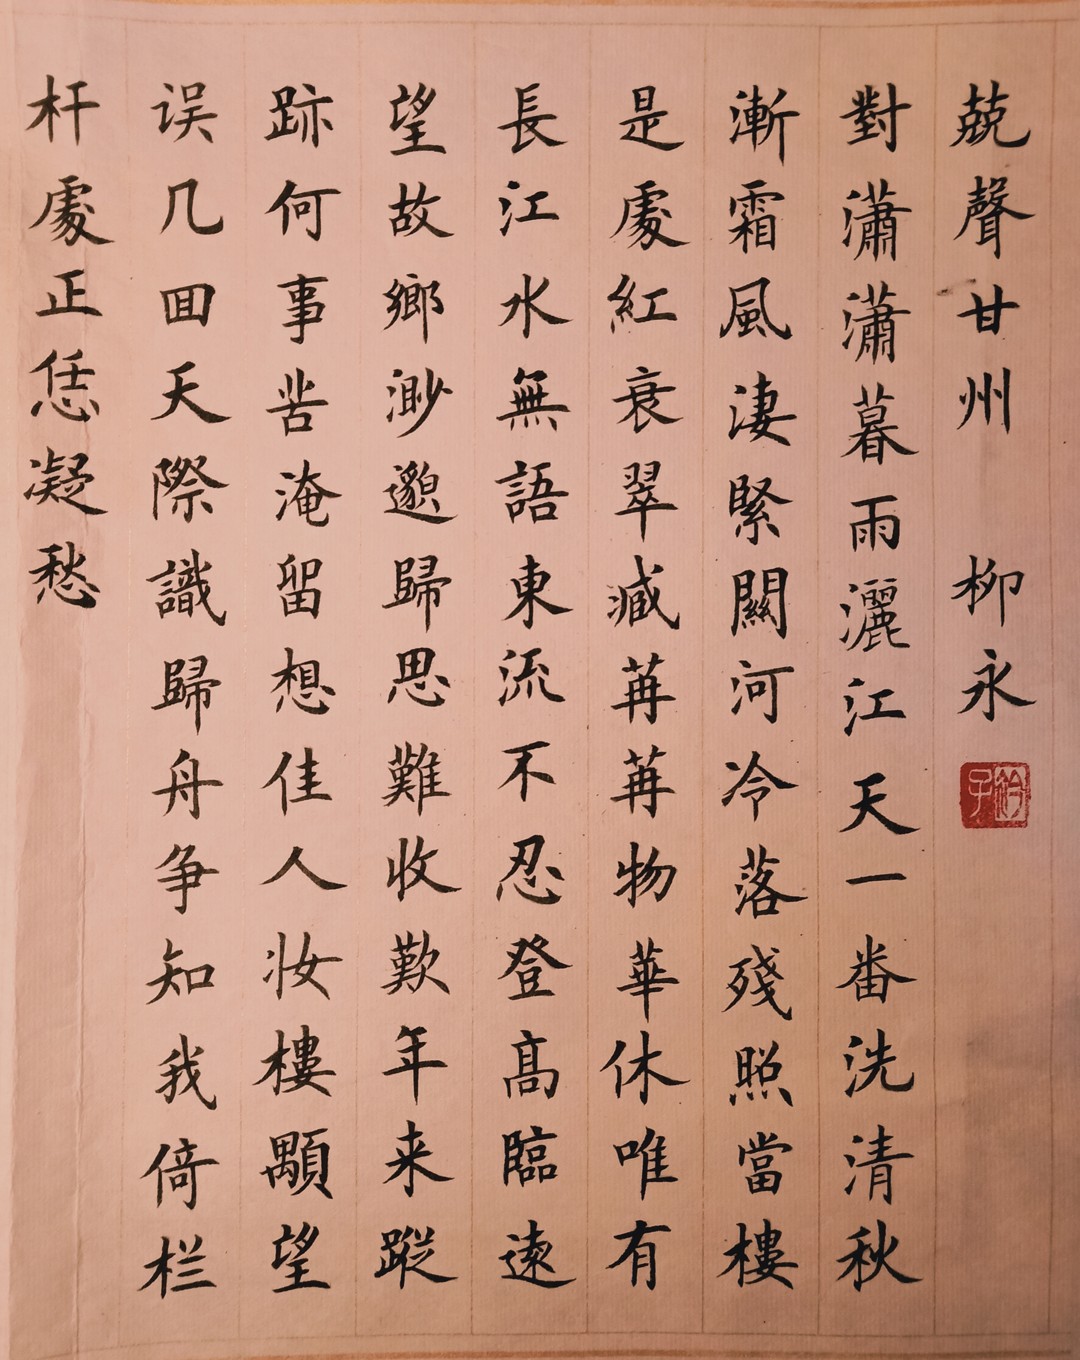 聲甘州 柳永
子衿
對瀟瀟暮雨灑江天一番洗清秋
漸霜風淒緊關河冷落殘照當樓
是處紅衰翠減苒苒物華休唯有
長江水無語東流不忍登髙臨遠
望故鄉渺邈歸思難收歎年来蹤
跡何事苦淹留想佳人妆樓顒望
误几回天際識歸舟争知我倚栏
杆處正恁凝愁